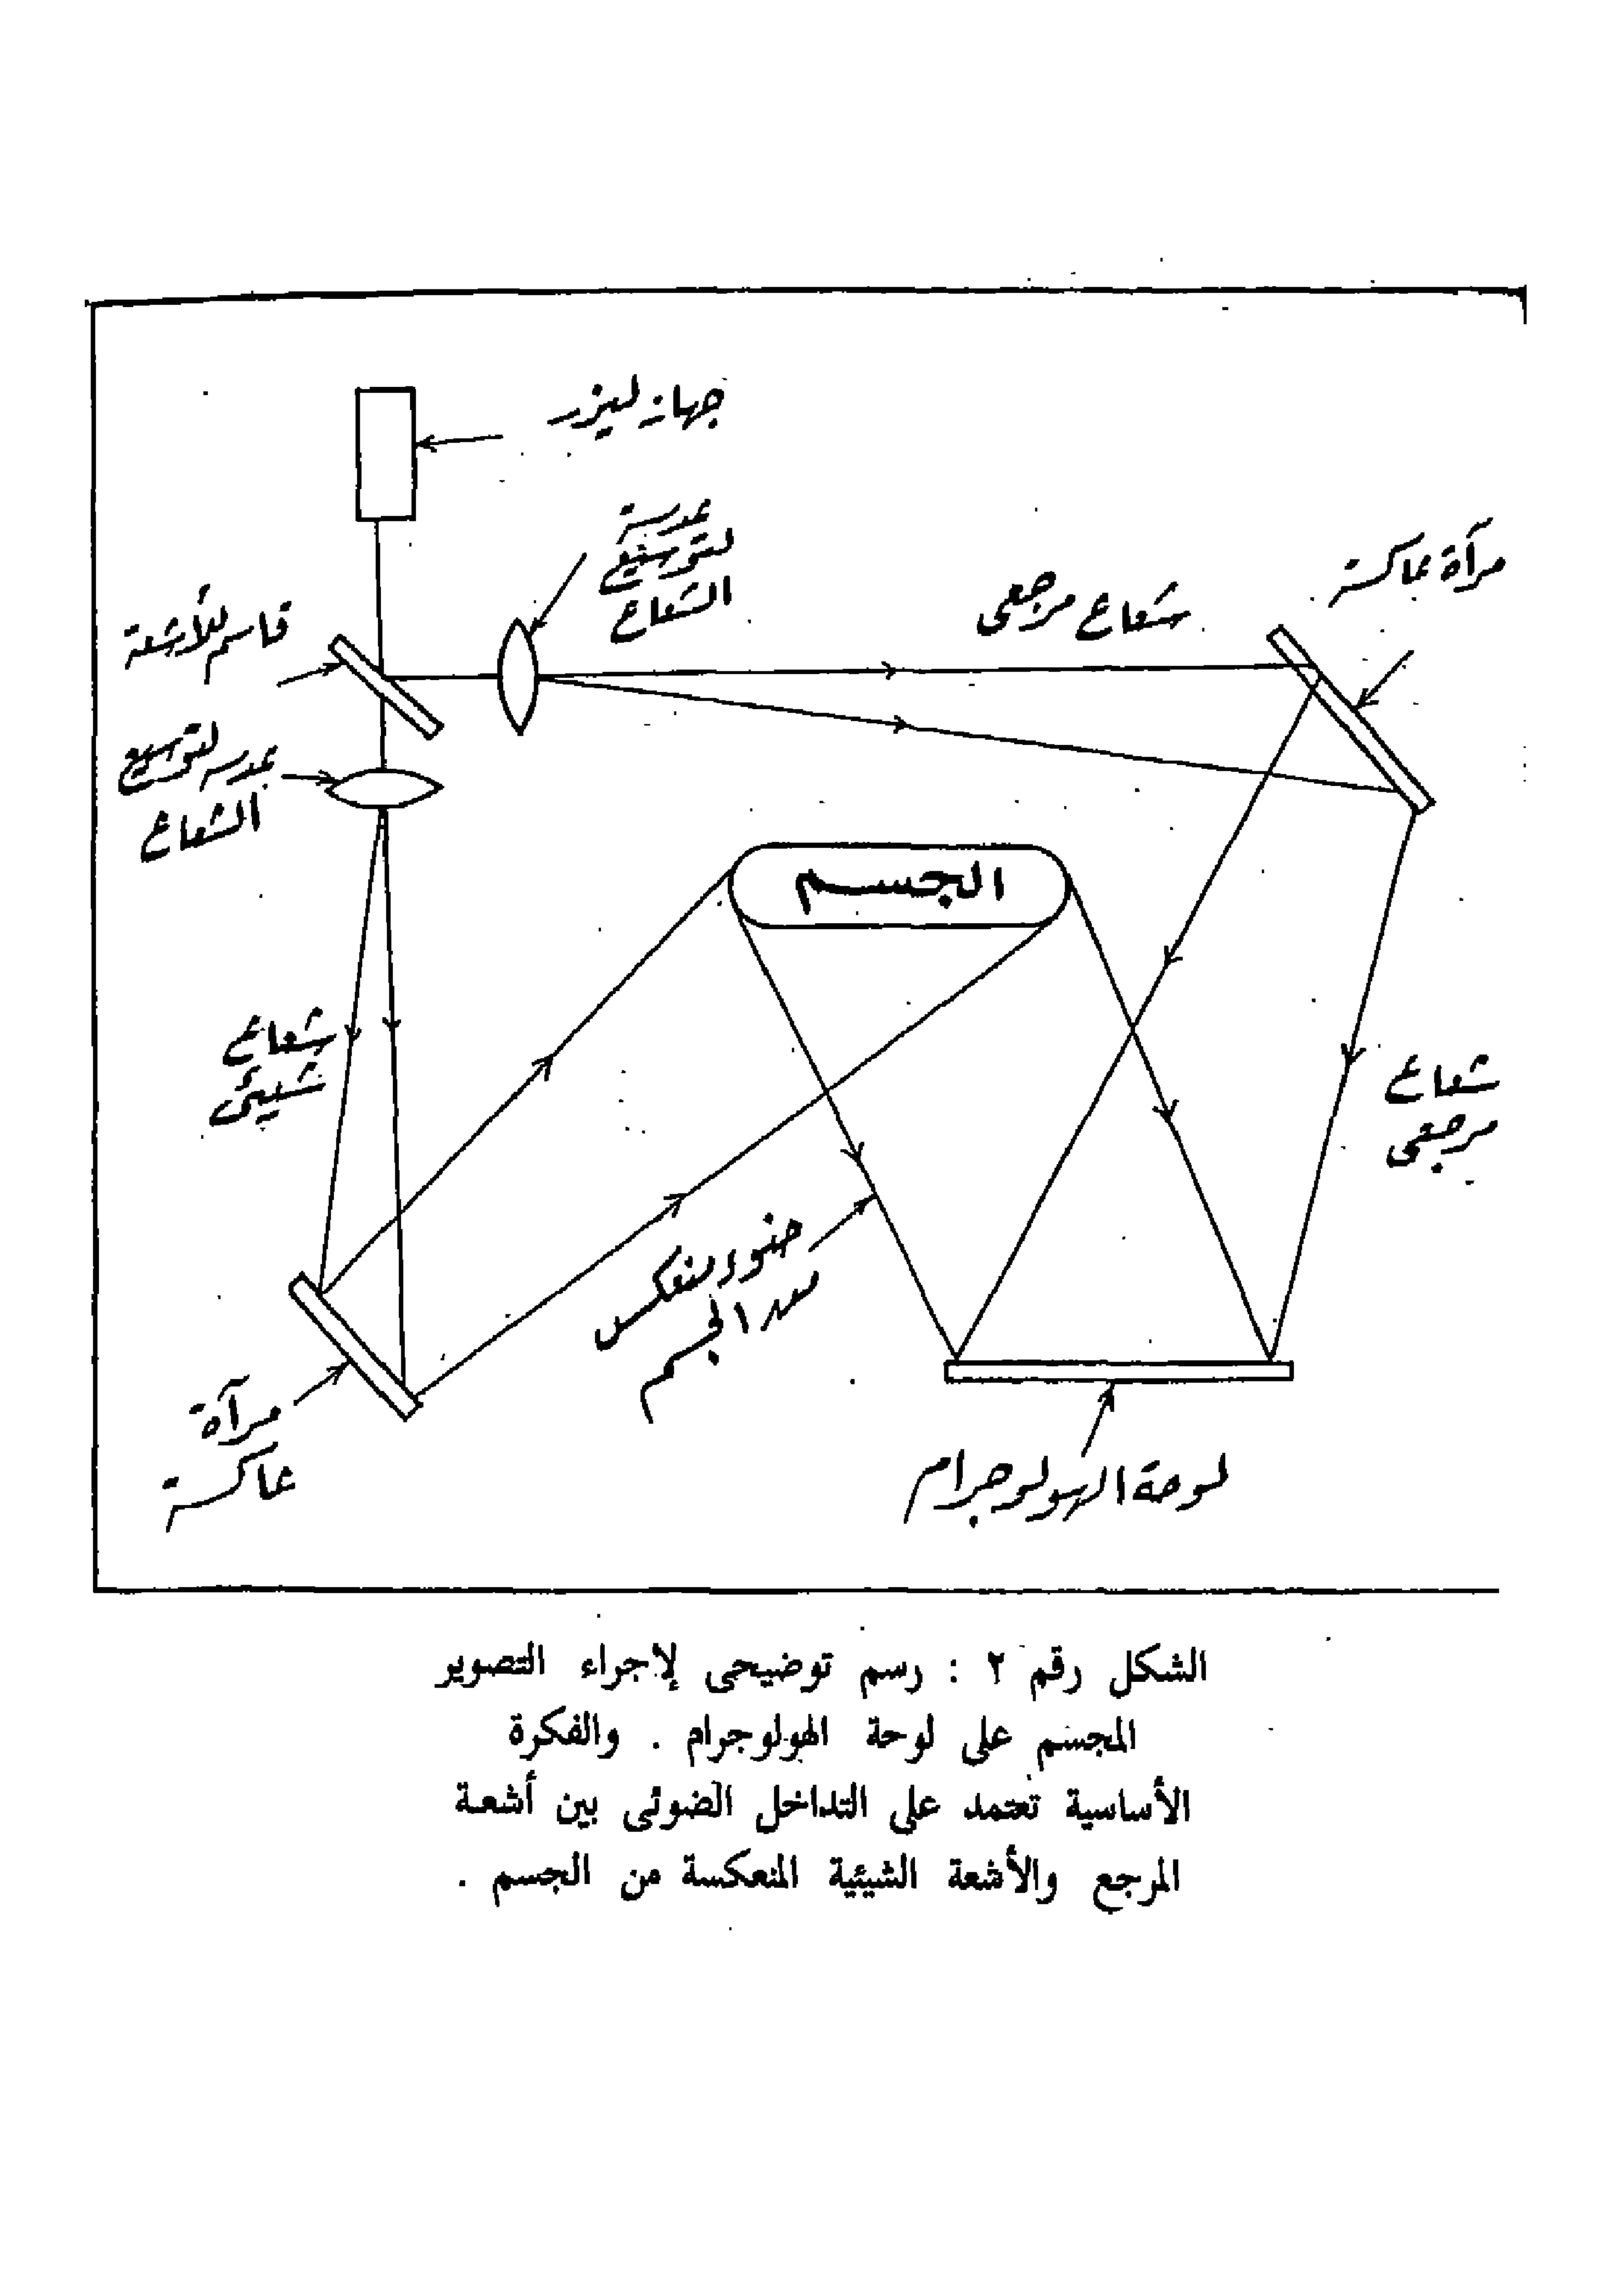 جهاز ليزر
عدسة
لتوسيع
الشعاع
مرآة عاكسة
شعاع مرجعى
قاسم للأشعة
عدسه لتوسيع
الشعاع
الجسم
شعاع
شيئى
شعاع
مرجعى
ضوء منعكس
من الجسم
مرآة
عاكسة
لوحة الهولوجرام
الشكل رقم ٢ : رسم توضيحى لإجراء التصوير
المجسم على لوحة الهولوجرام . والفكرة
الأساسية تعتمد على التداخل الضوئى بين أشعة
المرجع والأشعة الشيئية المنعكسة من الجسم .